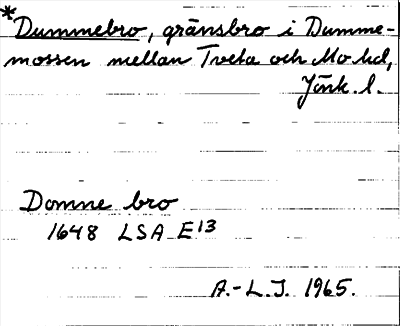 * Dummebro, gränsbro i Dumme-
mossen mellan Tveta och Mo hd,
Jönk. l.
Domne bro
1648 LSA E13
A.-L.J. 1965.